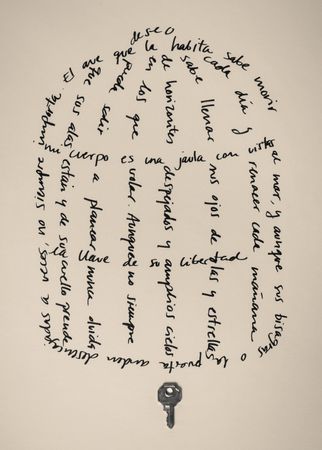 deseo
El ave que la habita sabe morir
cada día y renacer cada mañana
sabe llenar sus ojos de olas y estrellas
de horizontes despejados y amplios cielos
en los que volar. Aunque no siempre
puede salir a planear, nunca duda
sus alas están y de su cuello prende
llave de su libertad
mi cuerpo es una jaula con vista
al mar, y aunque sus bisagras
o la puerta anden
a veces, no siempre